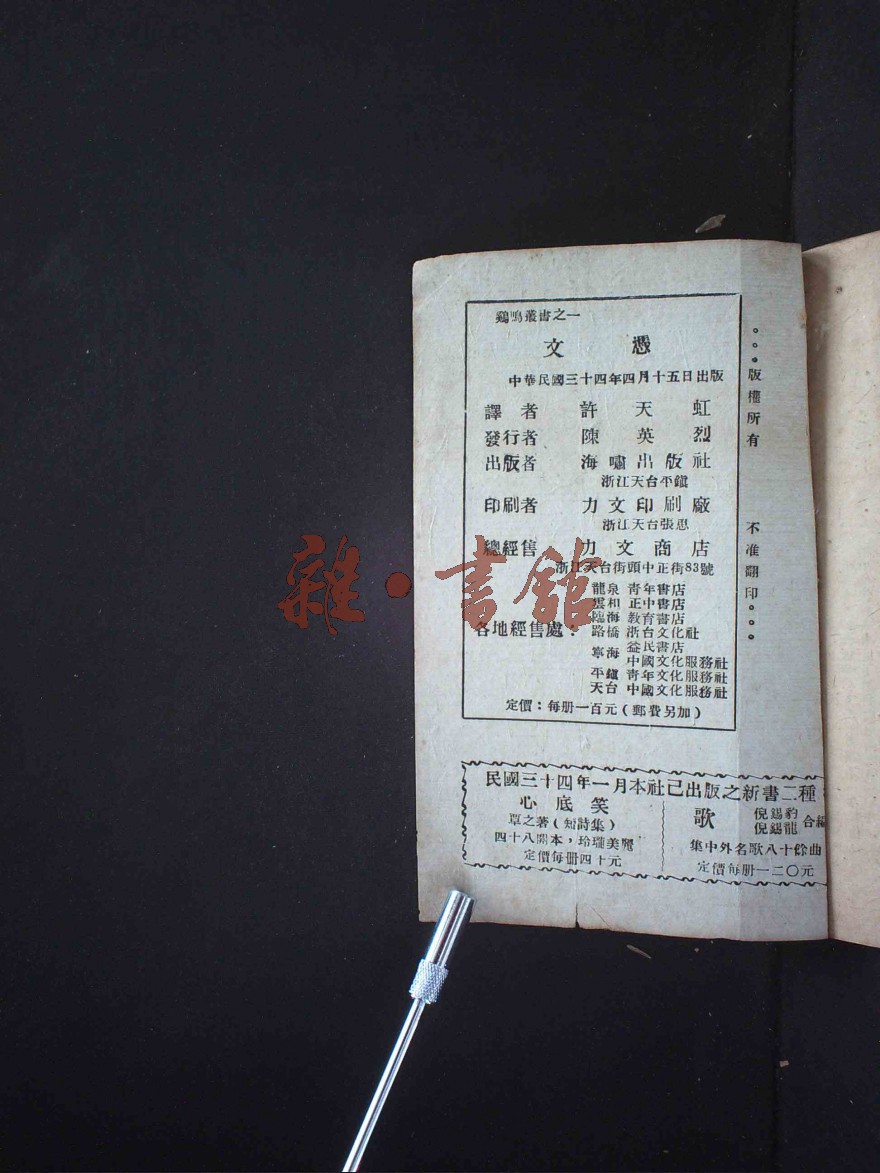 鷄鳴叢書之一
文憑
中華民國三十四年四月十五日出版
譯者 許天虹
發行者 陳英烈
出版者 海嘯出版社
浙江天台平鎭
印刷者 力文印刷廠
浙江天台張思
總經售 力文商店
浙江天台街頭中正街83號
各地經售處：
龍泉 青年書店
雲和 正中書店
臨海 教育書店
路橋 浙台文化社
寧海 益民書店
中國文化服務社
平鎭 青年文化服務社
天台 中國文化服務社
定價：每册一百元（郵費另加）
。。。版權所有 不准翻印。。。
民國三十四年一月本社已出版之新書二種
心底笑
覃之著（短詩集）
四十八開本，玲瓏美麗
定價每册四十元
歌 倪錫豹 倪錫龍 合編
集中外名歌八十餘曲
定價每册一二〇元
雜·書館